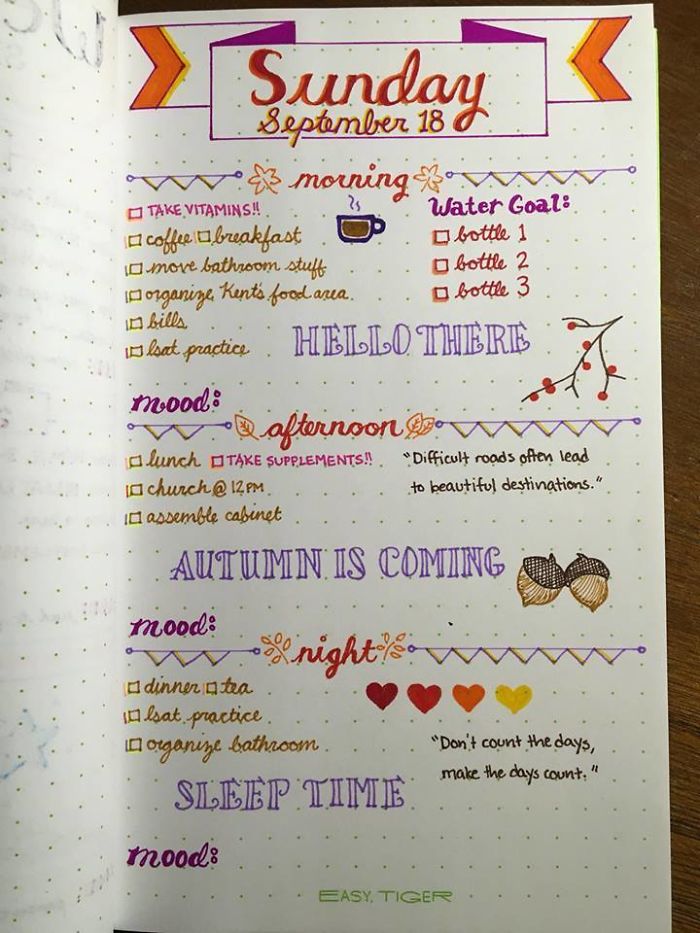 Sunday
September 18
morning
TAKE VITAMINS!!
coffee breakfast
move bathroom stuff
organize Kent's food area
bills
lsat practice
Water Goal:
bottle 1
bottle 2
bottle 3
HELLO THERE
mood:
afternoon
lunch TAKE SUPPLEMENTS!!
church @ 12PM
assemble cabinet
"Difficult roads often lead
to beautiful destinations."
AUTUMN IS COMING
mood:
night
dinner tea
lsat practice
organize bathroom
"Don't count the days,
make the days count."
SLEEP TIME
mood:
EASY, TIGER